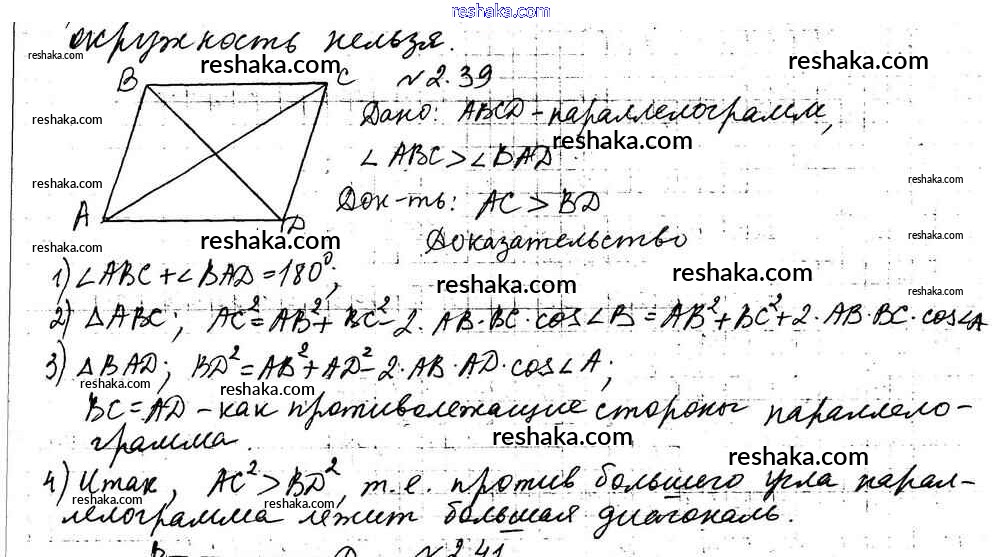 reshaka.com
окружность нельзя.
reshaka.com
reshaka.com
reshaka.com
B
C
№2.39
Дано: ABCD - параллелограмм,
reshaka.com
reshaka.com
∠ABC > ∠BAD
reshaka.com
reshaka.com
Док-ть: AC > BD
A
D
reshaka.com
reshaka.com
Доказательство
reshaka.com
1) ∠ABC + ∠BAD = 180⁰;
reshaka.com
reshaka.com
reshaka.com
2) △ABC; AC² = AB² + BC² - 2·AB·BC·cos∠B = AB² + BC² + 2·AB·BC·cos∠A
3) △BAD; BD² = AB² + AD² - 2·AB·AD·cos∠A;
reshaka.com
reshaka.com
BC = AD - как противолежащие стороны параллело-
грамма.
reshaka.com
reshaka.com
4) Итак, AC² > BD², т.е. против большего угла парал-
reshaka.com
reshaka.com
лелограмма лежит большая диагональ.
reshaka.com
reshaka.com
№2.41